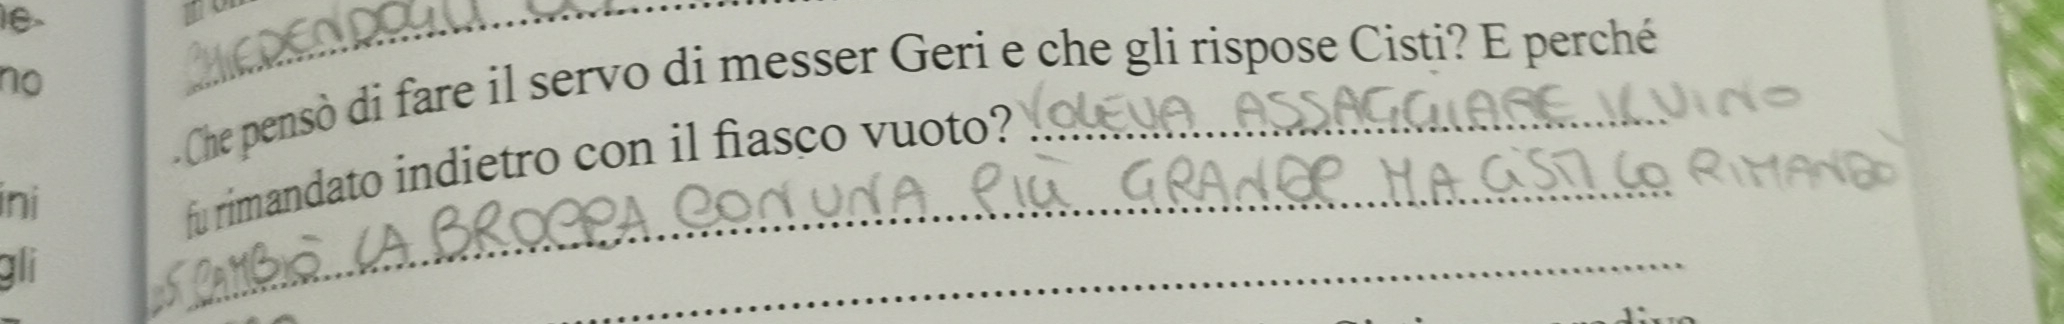 e-
no
CHIEDENDOGLI
- Che pensò di fare il servo di messer Geri e che gli rispose Cisti? E perché
fu rimandato indietro con il fiasco vuoto? VOLEVA ASSAGGIARE IL VINO
ini
SCAMBIÒ LA BROCCA CON UNA PIÙ GRANDE MA CISTI LO RIMANDÒ
gli